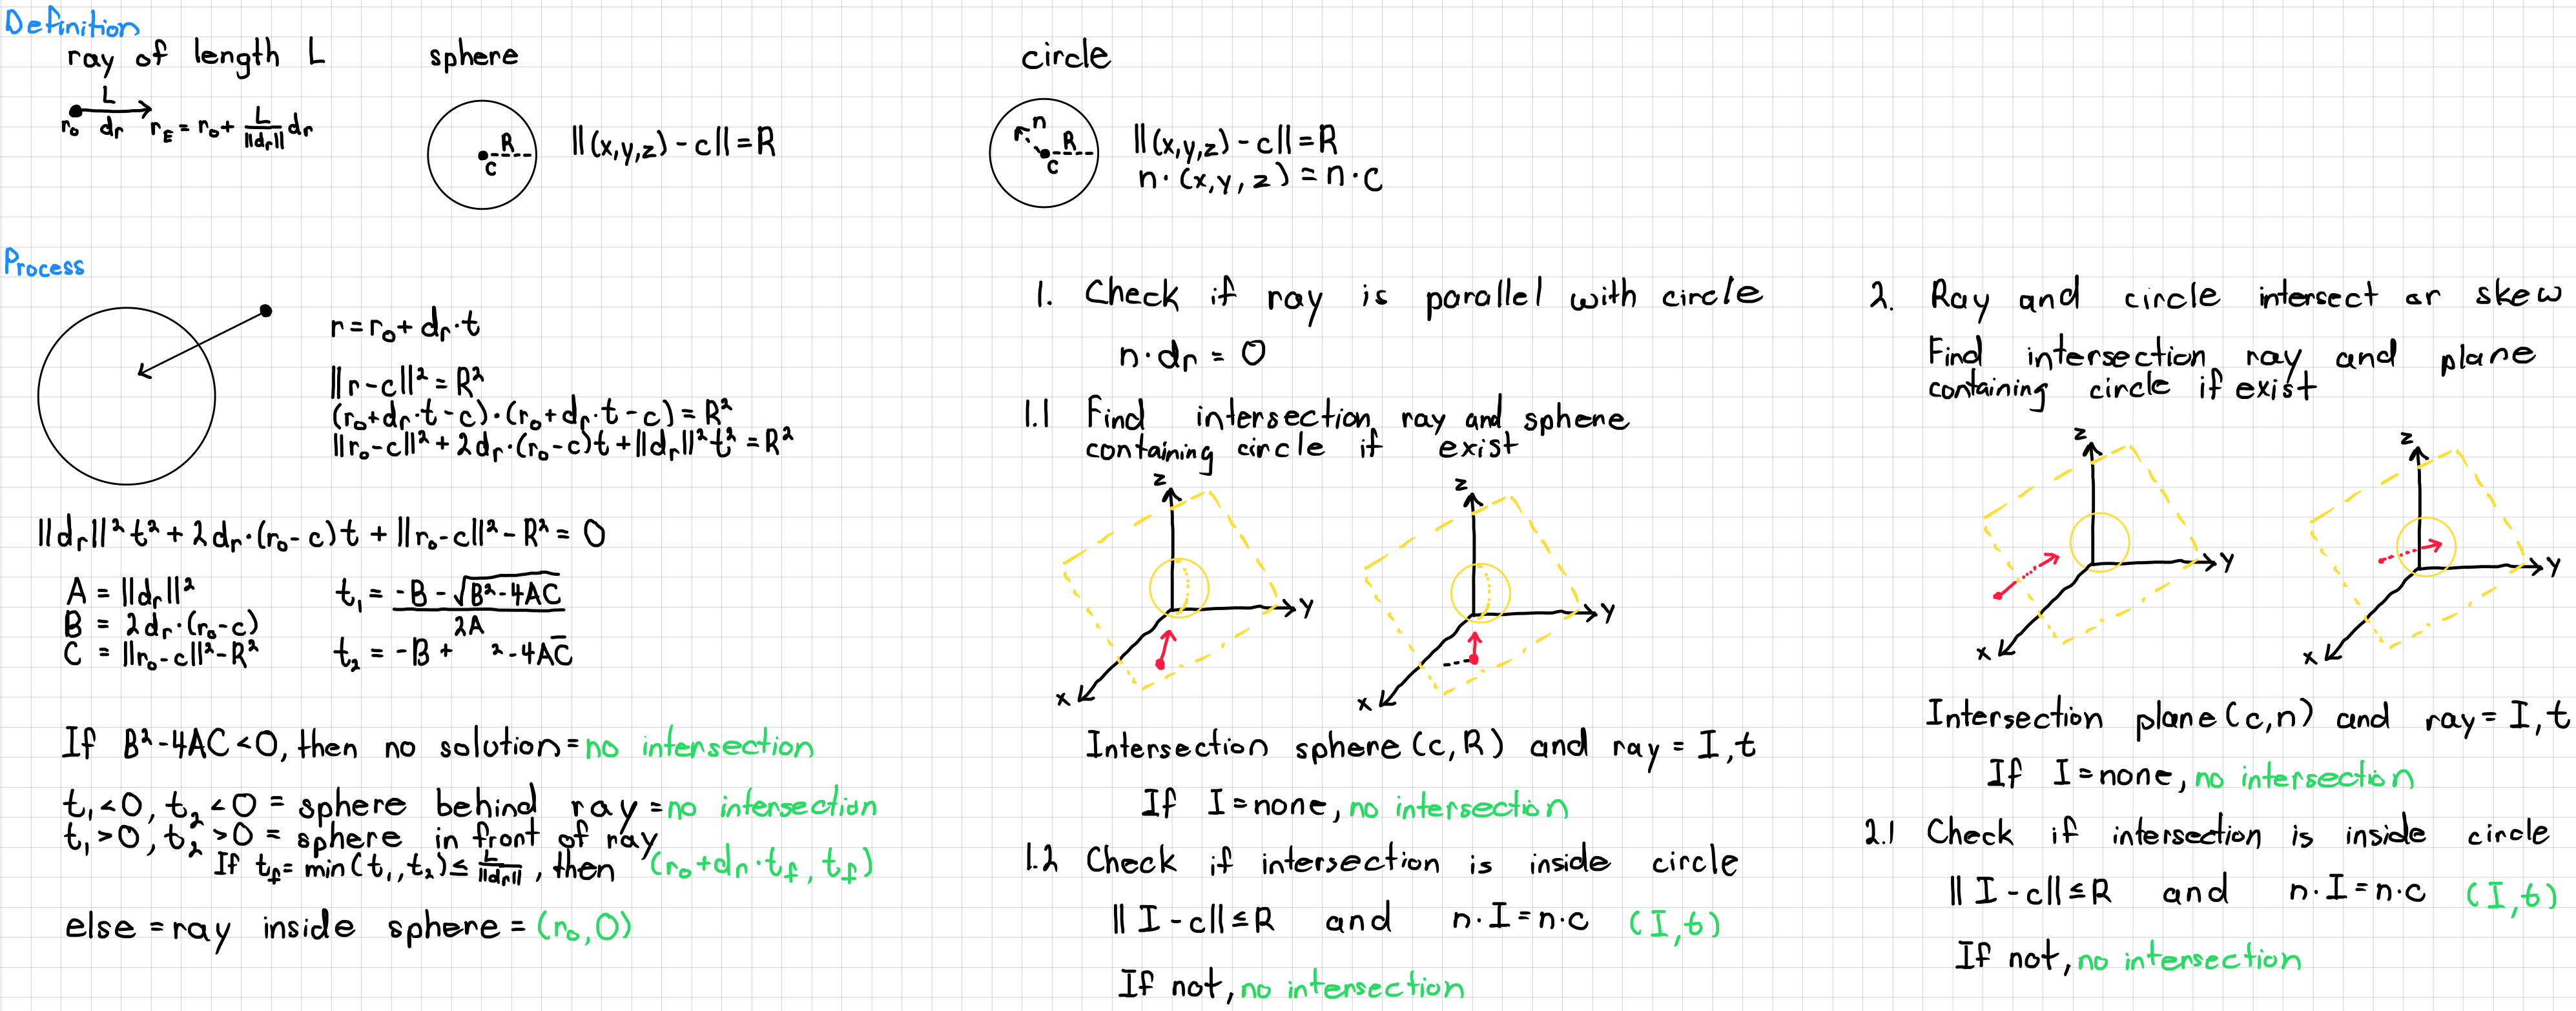 Definition
ray of length L
L
r₀ dᵣ r_E = r₀ + L/||dᵣ|| dᵣ
sphere
R
c
||(x,y,z) - c|| = R
circle
n
R
c
||(x,y,z) - c|| = R
n · (x,y,z) = n · c
Process
r = r₀ + dᵣ · t
||r - c||² = R²
(r₀ + dᵣ · t - c) · (r₀ + dᵣ · t - c) = R²
||r₀ - c||² + 2dᵣ · (r₀ - c)t + ||dᵣ||² t² = R²
||dᵣ||² t² + 2dᵣ · (r₀ - c)t + ||r₀ - c||² - R² = 0
A = ||dᵣ||²
B = 2dᵣ · (r₀ - c)
C = ||r₀ - c||² - R²
t₁ = (-B - √(B² - 4AC)) / 2A
t₂ = -B + ² - 4AC
If B² - 4AC < 0, then no solution = no intersection
t₁ < 0, t₂ < 0 = sphere behind ray = no intersection
t₁ > 0, t₂ > 0 = sphere in front of ray
If t_f = min(t₁, t₂) ≤ L/||dᵣ||, then (r₀ + dᵣ · t_f, t_f)
else = ray inside sphere = (r₀, 0)
1. Check if ray is parallel with circle
n · dᵣ = 0
1.1 Find intersection ray and sphere
containing circle if exist
z
y
x
z
y
x
Intersection sphere (c, R) and ray = I, t
If I = none, no intersection
1.2 Check if intersection is inside circle
||I - c|| ≤ R and n · I = n · c (I, t)
If not, no intersection
2. Ray and circle intersect or skew
Find intersection ray and plane
containing circle if exist
z
y
x
z
y
x
Intersection plane (c, n) and ray = I, t
If I = none, no intersection
2.1 Check if intersection is inside circle
||I - c|| ≤ R and n · I = n · c (I, t)
If not, no intersection